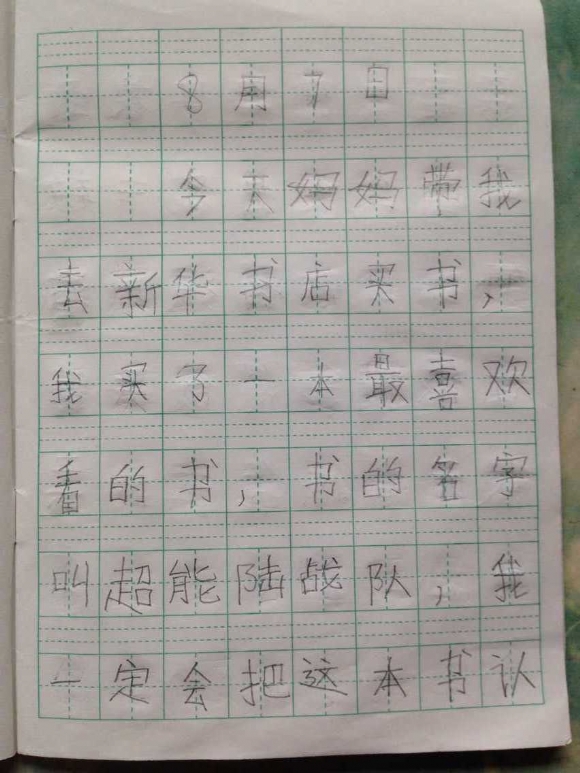 8月7日
今天妈妈带我
去新华书店买书，
我买了一本最喜欢
看的书，书的名字
叫超能陆战队，我
一定会把这本书认